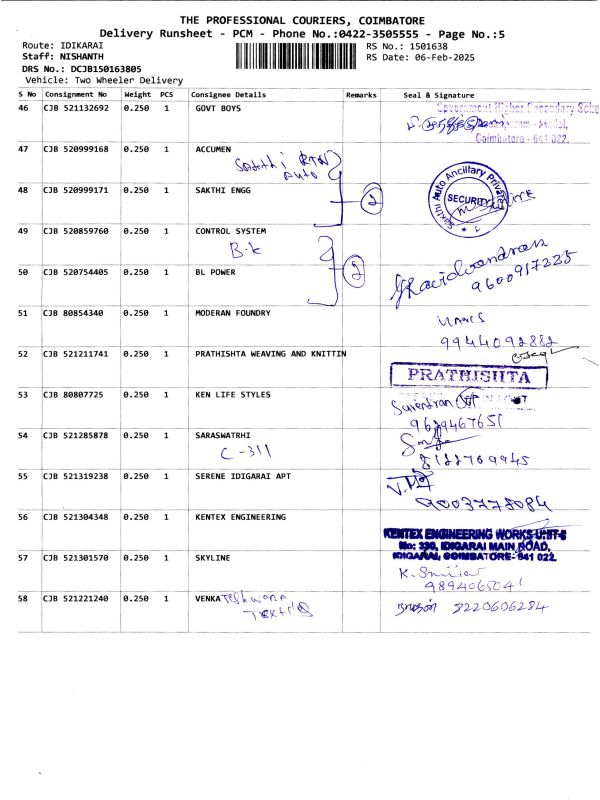 THE PROFESSIONAL COURIERS, COIMBATORE
Delivery Runsheet - PCM - Phone No.:0422-3505555 - Page No.:5
Route: IDIKARAI
RS No.: 1501638
Staff: NISHANTH
RS Date: 06-Feb-2025
DRS No.: DCJB150163805
Vehicle: Two Wheeler Delivery
S No Consignment No Weight PCS Consignee Details Remarks Seal & Signature
46 CJB 521132692 0.250 1 GOVT BOYS
Government Higher Secondary Scho
Coimbatore - 641 022.
47 CJB 520999168 0.250 1 ACCUMEN
Sakthi
Auto
48 CJB 520999171 0.250 1 SAKTHI ENGG
2
Sakthi Auto Ancillary Private
SECURITY
49 CJB 520859760 0.250 1 CONTROL SYSTEM
B.k
50 CJB 520754405 0.250 1 BL POWER
2
9600917225
51 CJB 80854340 0.250 1 MODERAN FOUNDRY
9944092882
52 CJB 521211741 0.250 1 PRATHISHTA WEAVING AND KNITTIN
PRATHISHTA
53 CJB 80807725 0.250 1 KEN LIFE STYLES
Surendran
9629467651
54 CJB 521285878 0.250 1 SARASWATRHI
C-311
8122769945
55 CJB 521319238 0.250 1 SERENE IDIGARAI APT
9003778084
56 CJB 521304348 0.250 1 KENTEX ENGINEERING
KENTEX ENGINEERING WORKS UNIT-II
No: 330, IDIGARAI MAIN ROAD,
IDIGARAI, COIMBATORE- 641 022.
57 CJB 521301570 0.250 1 SKYLINE
9894065041
58 CJB 521221240 0.250 1 VENKATeshwara
Textile
8220606284